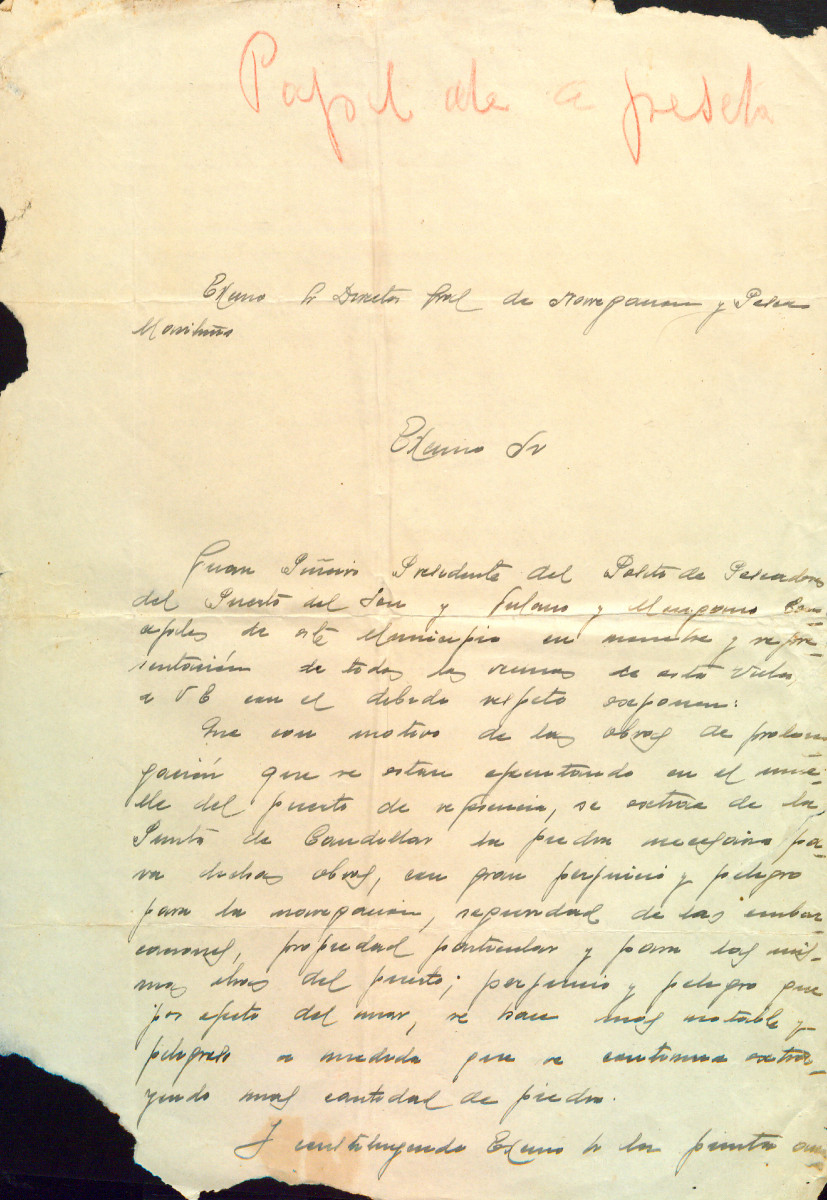 Papel de a peseta
Exmo Sr Director Gral de Navegacion y Pesca
Maritima
Exmo Sr
Juan Piñeiro Presidente del Posito de Pescadores
del Puerto del Son y Fulano y Mengano Con-
cejales de este Municipio en nombre y repre-
sentación de todos los vecinos de esta Villa,
a V E con el debido respeto exponen:
Que con motivo de las obras de prolon
gación que se estan ejecutando en el mue-
lle del puerto de referencia, se extrae de la
Punta de Caudellar la piedra necesaria pa-
ra dichas obras, con gran perjuicio y peligro
para la navegación, seguridad de las embar-
caciones, propiedad particular y para las mis-
mas obras del puerto; perjuicio y peligro que
por efecto del mar, se hace mas notable y
peligroso a medida que se continua extra-
yendo mas cantidad de piedra.
Y constituyendo Exmo Sr la punta